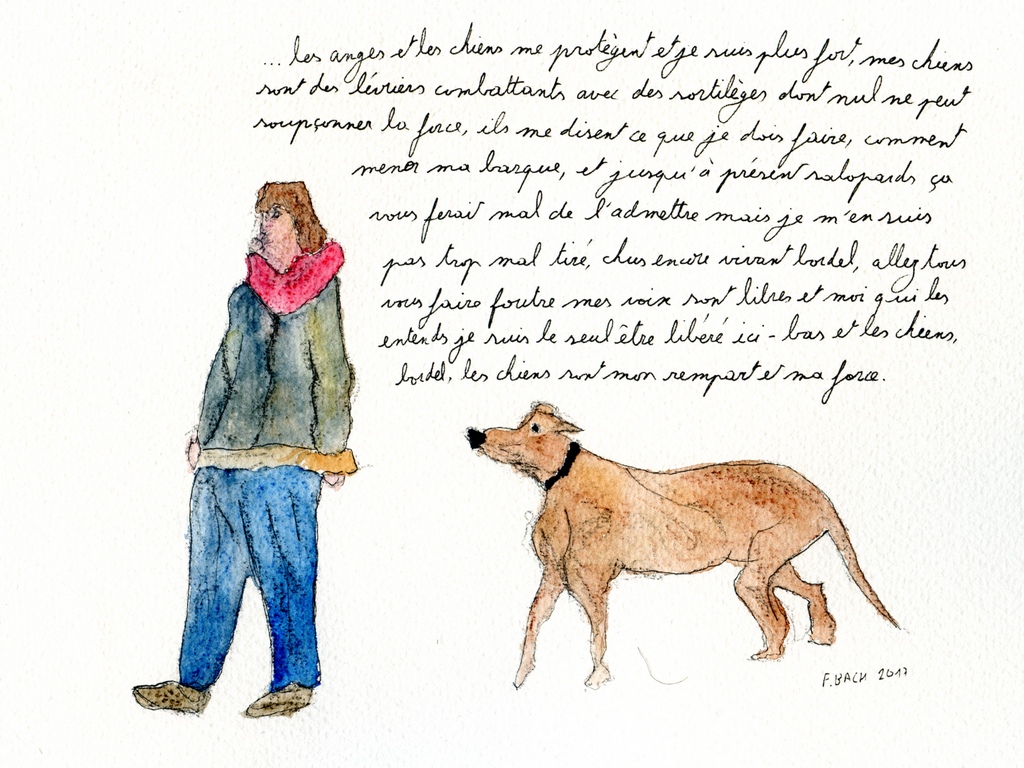 ...les anges et les chiens me protègent et je suis plus fort, mes chiens
sont des lévriers combattants avec des sortilèges dont nul ne peut
soupçonner la force, ils me disent ce que je dois faire, comment
mener ma barque, et jusqu'à présent salopards ça
vous ferait mal de l'admettre mais je m'en suis
pas trop mal tiré, chus encore vivant bordel, allez tous
vous faire foutre mes voix sont libres et moi qui les
entends je suis le seul être libéré ici-bas et les chiens,
bordel, les chiens sont mon rempart et ma force.
F. BACH 2017